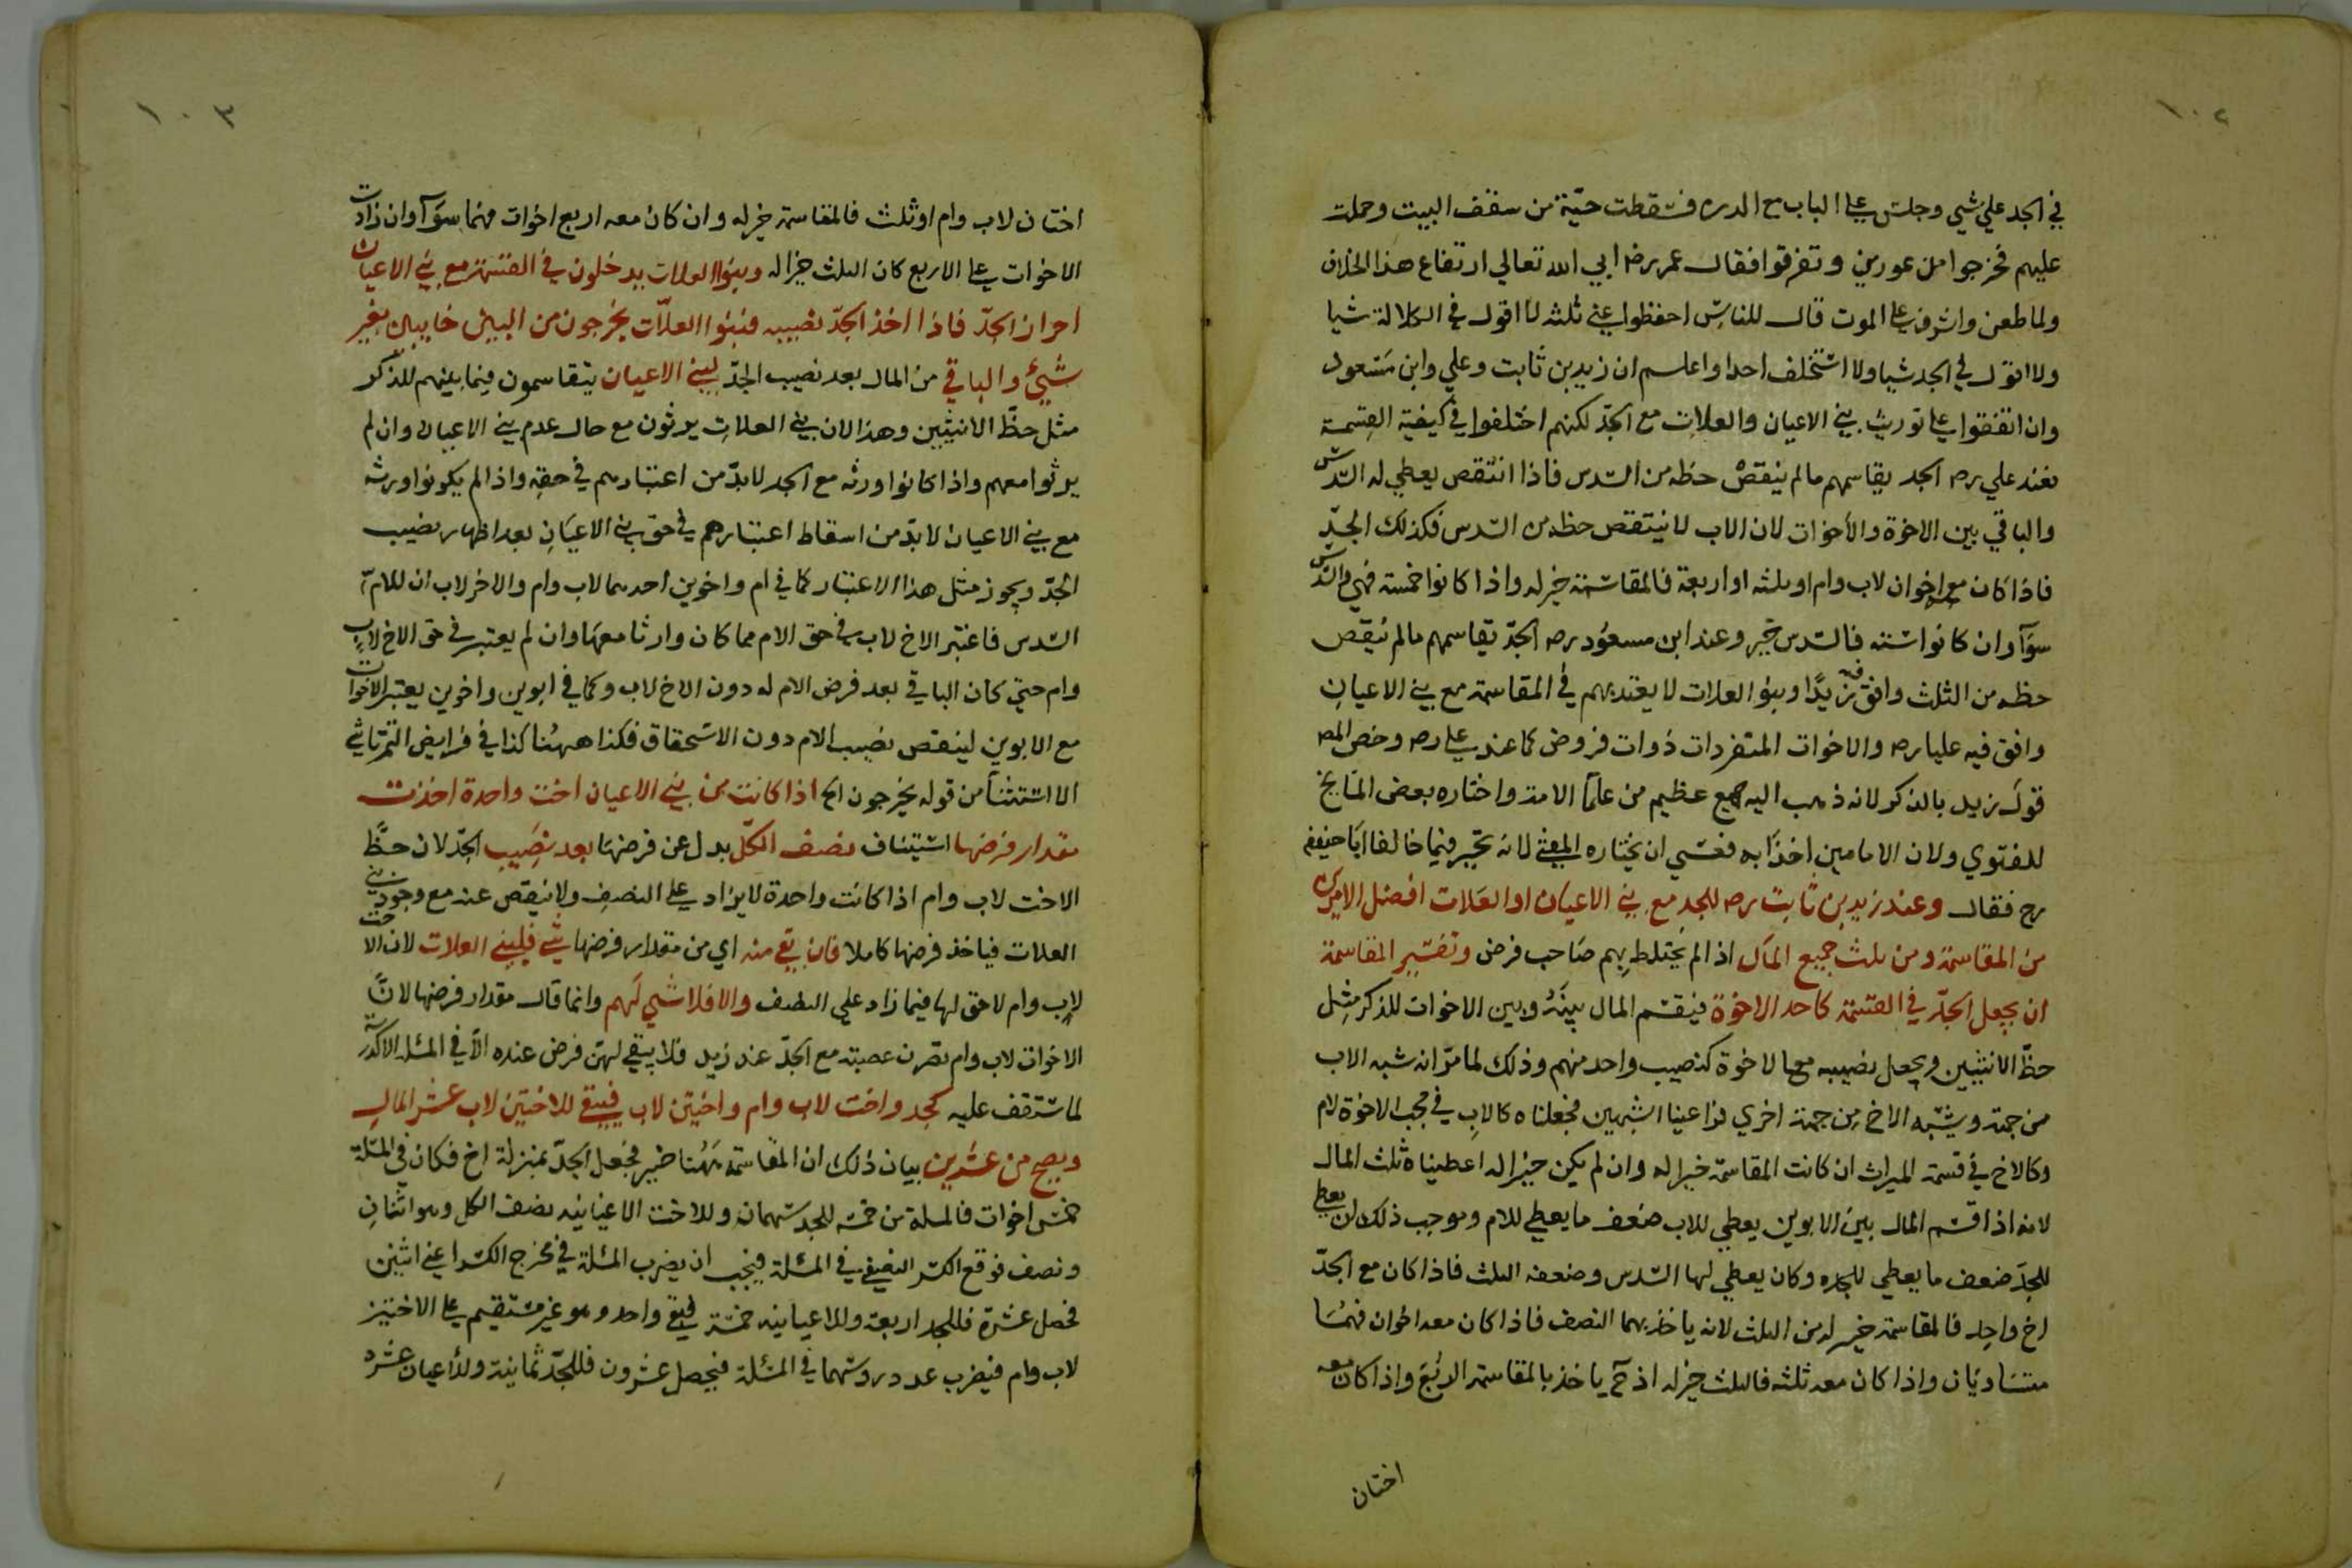 ١٠٢
في الجد علي شيي وجلس علي الباب مع الدره فسقطت حيّة من سقف البيت وحملت
عليهم فخرجوا من عورين وتفرقوا فقال عمر رضه ابي الله تعالي ارتفاع هذا الخلاف
ولما طعن واشرف علي الموت قال للناس احفظوا عني ثلثه لا اقول في الكلالة شيا
ولا اقول في الجد شيا ولا استخلف احدا واعلم ان زيد بن ثابت وعلي وابن مسعود
وان اتفقوا علي توريث بني الاعيان والعلات مع الجدّ لكنهم اختلفوا في كيفية القسمة
فعند علي رضه الجد يقاسمهم مالم ينقص حظه من السّدس فاذا انتقص يعطي له السّدس
والباقي بين الاخوة والأخوات لان الاب لا ينتقص حظه من السّدس فكذلك الجدّ
فاذا كان معه اخوان لاب وام او ثلثه او اربعة فالمقاسمة خير له واذا كانوا خمسة فهي والسّدس
سوآ وان كانوا استه فالسّدس خير وعند ابن مسعود رضه الجدّ يقاسمهم مالم ينقص
حظه من الثلث وافق فيه زيدًا وبنو العلات لا يعتد بهم في المقاسمة مع بني الاعيان
وافق فيه عليا رضه والاخوات المتفردات ذوات فروض كما عند علي رضه وخص المص
قول زيد بالذكر لانه ذهب اليه جمع عظيم من علمآ الامة واختاره بعض المشايخ
للفتوي ولان الامامين اخذا به فعسي ان يختاره المفتي لانه تخير فيما خالفا ابا حنيفه
رح فقال وعند زيد بن ثابت رضه للجد مع بني الاعيان او العَلات افضل الامرين
من المقاسمة ومن ثلث جميع المال اذ الم يختلط بهم صاحب فرض وتفسير المقاسمة
ان يجعل الجدّ في القسمة كاحد الاخوة فيقسم المال بينَهُ وبين الاخوات للذكر مثل
حظّ الانثيين ويجعل نصيبه مع الاخوة كنصيب واحد منهم وذلك لما مرّ انه شبه الاب
من جهة ويشبه الاخ من جهة اخري فراعينا الشبهين فجعلناه كالاب في حجب الاخوة لام
وكالاخ في قسمة الميراث ان كانت المقاسمة خيرا له وان لم يكن خيرا له اعطيناه ثلث المال
لانه اذا قسم المال بين الابوين يعطي للاب ضعف ما يعطي للام وموجب ذلك ان يعطي
للجدّ ضعف ما يعطي للجده وكان يعطي لها السّدس وضعفه الثلث فاذا كان مع الجدّ
اخ واحد فالمقاسمة خير له من الثلث لانه ياخذ بهما النصف فاذا كان معه اخوان فهمَا
متساويان واذا كان معه ثلثه فالثلث خير له اذ ح ياخذ بالمقاسمة الربُع واذا كان معه
اختان
١٠٣
اختان لاب وام او ثلث فالمقاسمة خير له وان كان معه اربع اخوات فهما سوآ وان زادت
الاخوات علي الاربع كان الثلث خيرا له وبنوا العلات يدخلون في القسمة مع بني الاعيان
اضرارا الجدّ فاذا اخذ الجدّ نصيبه فبنوا العلاّت يخرجون من البين خايبين بغير
شيئ والباقي من المال بعد نصيب الجدّ لبني الاعيان يتقاسمون فيما بينهم للذكر
مثل حظّ الانثيين وهذا لان بني العلات يرثون مع حال عدم بني الاعيان وان لم
يرثوا معهم واذا كانوا ورثه مع الجد لابدّ من اعتبارهم في حقه واذا لم يكونوا ورثه
مع بني الاعيان لابدّ من اسقاط اعتبارهم في حق بني الاعيَان بعد اظهار نصيب
الجدّ ويجوز مثل هذا الاعتبار كما في ام واخوين احدهما لاب وام والاخر لاب ان للام
السّدس فاعتبر الاخ لاب في حق الام مما كان وارثا معهَا وان لم يعتبر في حق الاخ لاب
وام حتي كان الباقي بعد فرض الام له دون الاخ لاب وكما في ابوين واخوين يعتبر الاخوات
مع الابوين لينقص نصيب الام دون الاستحقاق فكذا ههنا كذا في فرايض التمرتاشي
الا استثنآ من قوله يخرجون الخ اذا كانت من بني الاعيان اخت واحدة اخذت
مقدار فرضها استيناف نصف الكلّ بدل عن فرضها بعد نصِيب الجدّ لان حظّ
الاخت لاب وام اذا كانت واحدة لا يزاد علي النصف ولا ينقص عنه مع وجود بني
العلات فياخذ فرضها كاملا فان بقي منه اي من مقدار فرضها شي فلبني العلات لان الاخت
لاب وام لا حق لها فيما زاد علي النصف والا فلا شي لهم وانما قال مقدار فرضها لانّ
الاخوات لاب وام تصرن عصبته مع الجدّ عند زيد فلا يبقي لهنّ فرض عنده الّا في المسئلة الاكدرية
لما ستقف عليه كجد واخت لاب وام واختين لاب فيبقي للاختين لاب عشر المال
ويصح من عشرين بيان ذلك ان المقاسمة ههُنا خير فجعل الجدّ بمنزلة اخ فكان في المسئلة
خمس اخوات فالمسلة من خمسه للجد سهمان وللاخت الاعيانيه نصف الكل وهو اثنان
ونصف فوقع الكسر النصفي في المسئلة فيجب ان يضرب المسئلة في مخرج الكسر اعني اثنين
فحصل عشرة فللجد اربعة وللاعيانيه خمسة لبقي واحد وهو غير مستقيم علي الاختين
لاب وام فيضرب عدد روسهما في المسئلة فيحصل عشرون فللجدّ ثمانية وللأعيان عشره